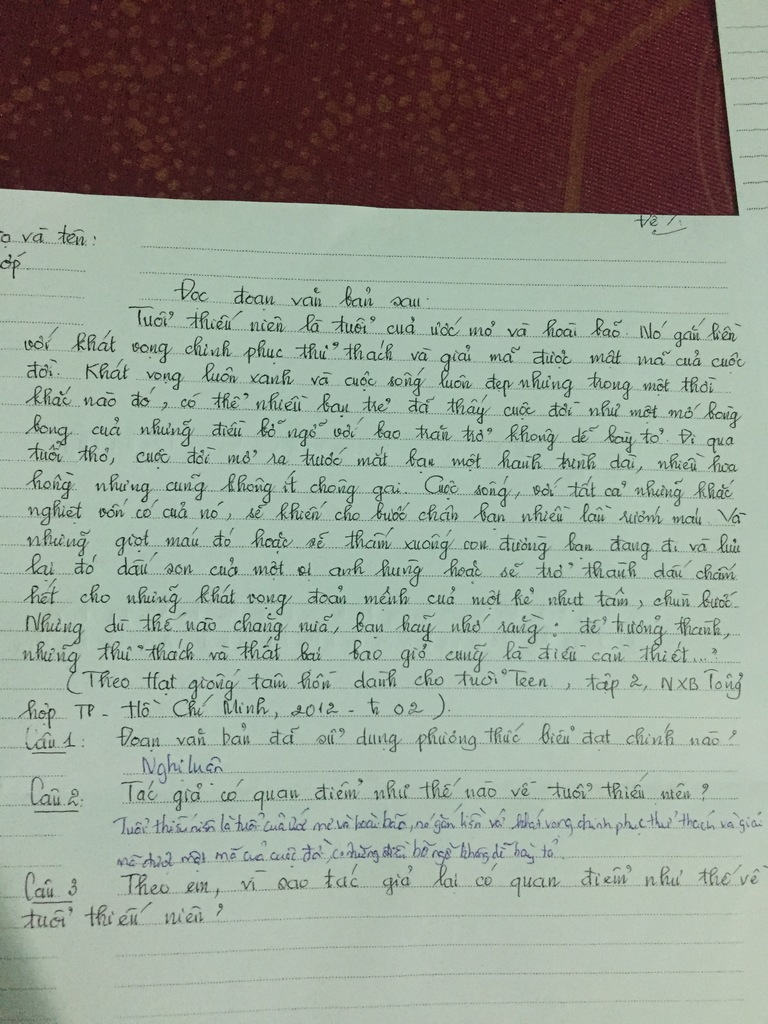 Đề 1
ọ và tên:
ớp
Đọc đoạn văn bản sau:
Tuổi thiếu niên là tuổi của ước mơ và hoài bão. Nó gắn liền
với khát vọng chinh phục thử thách và giải mã được mật mã của cuộc
đời. Khát vọng luôn xanh và cuộc sống luôn đẹp nhưng trong một thời
khắc nào đó, có thể nhiều bạn trẻ đã thấy cuộc đời như một mớ bòng
bong của những điều bỡ ngỡ với bao trăn trở không dễ bày tỏ. Đi qua
tuổi thơ, cuộc đời mở ra trước mắt bạn một hành trình dài, nhiều hoa
hồng nhưng cũng không ít chông gai. Cuộc sống, với tất cả những khắc
nghiệt vốn có của nó, sẽ khiến cho bước chân bạn nhiều lần rướm máu. Và
những giọt máu đó hoặc sẽ thấm xuống con đường bạn đang đi và lưu
lại đó dấu son của một vị anh hùng hoặc sẽ trở thành dấu chấm
hết cho những khát vọng đoản mệnh của một kẻ nhụt tâm, chùn bước.
Nhưng dù thế nào chăng nữa, bạn hãy nhớ rằng: để trưởng thành,
những thử thách và thất bại bao giờ cũng là điều cần thiết...?
(Theo Hạt giống tâm hồn dành cho tuổi Teen, tập 2, NXB Tổng
hợp TP - Hồ Chí Minh, 2012 - tr 02).
Câu 1: Đoạn văn bản đã sử dụng phương thức biểu đạt chính nào?
Nghị luận
Câu 2: Tác giả có quan điểm như thế nào về tuổi thiếu niên?
Tuổi thiếu niên là tuổi của ước mơ và hoài bão, nó gắn liền với khát vọng chinh phục thử thách và giải
mã được mật mã của cuộc đời, có những điều bỡ ngỡ không dễ bày tỏ.
Câu 3 Theo em, vì sao tác giả lại có quan điểm như thế về
tuổi thiếu niên?